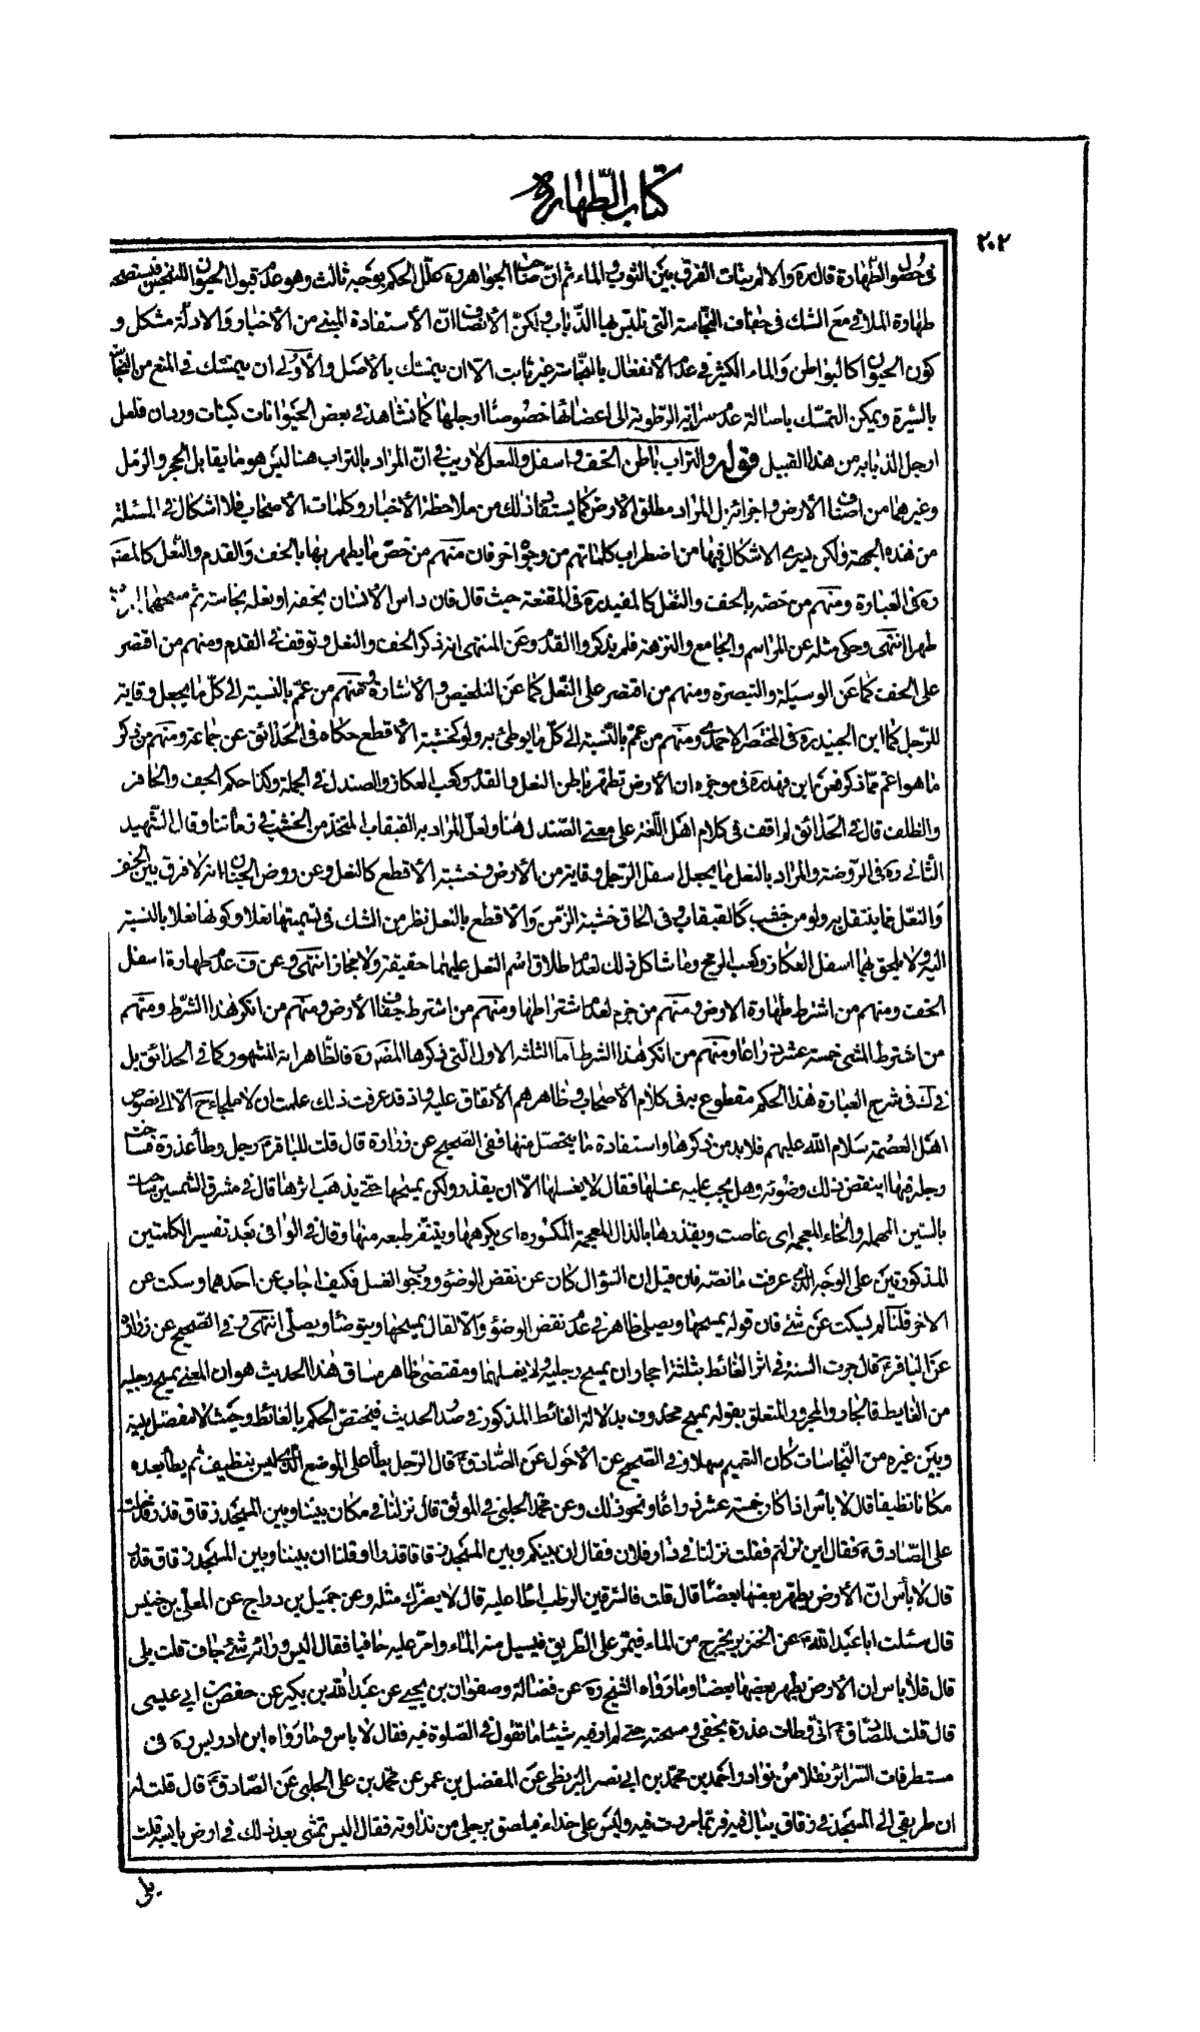 كتاب الطهارة
٢٠٢
في حصول الطهارة قال ره والا لم يتأت الفرق بين الثوب والماء ثم ان صاحب الجواهر ره علل الحكم بوجه ثالث وهو عدم قبول الحيوان للتنجيس فيستصحب
طهارة الملاقي مع الشك في جفاف النجاسة التي تلبس بها الذباب ولكن الأنصاف ان الأستفادة المبني من الأخبار والادلة مشكل و
كون الحيوان كالبواطن والماء الكثير في عدم الأنفعال بالنجاسة غير ثابت الا ان يتمسك بالأصل والأولى ان يتمسك في المنع من النجاسة
بالسيرة ويمكن التمسك باصالة عدم سراية الرطوبة الى اعضائها خصوصا ارجلها كما نشاهد في بعض الحيوانات كبنات وردان فلعل
ارجل الذبابة من هذا القبيل قوله والتراب باطن الخف واسفل والنعل لا ريب في ان المراد بالتراب هنا ليس هو ما يقابل الحجر والرمل
وغيرهما من اصناف الأرض واجزائها بل المراد مطلق الأرض كما يستفاد ذلك من ملاحظة الأخبار وكلمات الأصحاب فلا اشكال في المسئلة
من هذه الجهة ولكن يبدي الاشكال فيها من اضطراب كلماتهم من وجوه اخر فان منهم من خص ما يطهر بها بالخف والقدم والنعل كالمصنف
ره في العبارة ومنهم من خصه بالخف والنعل كالمفيد ره في المقنعة حيث قال فان داس الأنسان بخفه او نعله نجاسة ثم مسحهما
طهرا انتهى وحكى مثله عن المراسم والجامع والنزهة فلم يذكروا القدم وعن المنتهى انه ذكر الخف والنعل وتوقف في القدم ومنهم من اقتصر
على الخف كما عن الوسيلة والتبصرة ومنهم من اقتصر على النعل كما عن التلخيص والأشارة ومنهم من عمم بالنسبة الى كل ما يجعل وقاية
للرجل كما ابن الجنيد ره في المختصر الاحمدي ومنهم من عمم بالنسبة الى كل ما يوطئ به ولو كخشبة الأقطع حكاه في الحدائق عن جماعة ومنهم من ذكر
ما هو اعم مما ذكر فعن ابن فهد ره في موجزه ان الأرض تطهر باطن النعل والقدم وكعب العكاز والصندل في الجملة وكذا حكم الخف والحافر
والظلف قال في الحدائق لم اقف في كلام اهل اللغة على معنى الصندل هنا ولعل المراد به القبقاب المتخذ من الخشب في زماننا وقال الشهيد
الثاني ره في الروضة والمراد بالنعل ما يجعل اسفل الرجل وقاية من الأرض وخشبة الأقطع كالنعل وعن روض الجنان انه لا فرق بين الخف
والنعل مما ينتقل به ولو من خشب كالقبقاب وفي الحاق خشبة الزمن والأقطع بالنعل نظر من الشك في تسميتها نعلا وكونها نعلا بالنسبة
اليه ولا يلحق بهما اسفل العكاز وكعب الرمح وما شاكل ذلك لعدم اطلاق اسم النعل عليهما حقيقة ولا مجازا انتهى وعن ف عدم طهارة اسفل
الخف ومنهم من اشترط طهارة الارض ومنهم من جزم بعدم اشتراطها ومنهم من اشترط جفاف الأرض ومنهم من انكر هذا الشرط ومنهم
من اشترط المشي خمسة عشر ذراعا ومنهم من انكر هذا الشرط اما الثلثة الاول التي ذكرها المصنف ره فالظاهر انه المشهور كما في الحدائق بل
في ك في شرح العبارة هذا الحكم مقطوع به في كلام الأصحاب وظاهرهم الأتفاق عليه واذ قد عرفت ذلك علمت ان لا ملجاء ح الا الى نصوص
اهل العصمة سلام الله عليهم فلا بد من ذكرها واستفادة ما يتحصل منها ففي الصحيح عن زرارة قال قلت للباقر ع رجل وطأ عذرة فساخت
رجله فيها اينقض ذلك وضوئه وهل يجب عليه غسلها فقال لا يغسلها الا ان يقذر ولكن يمسحها حتى يذهب اثرها قال في مشرق الشمسين ساخت
بالسين المهملة والخاء المعجمة اى غاصت ويقذرها بالذال المعجمة المكسورة اى يكرهها ويتنفر طبعه منها وقال في الوافي بعد تفسير الكلمتين
المذكورتين على الوجه الذي عرفت ما نصه فان قيل ان السؤال كان عن نقض الوضوء ووجوب الغسل فكيف اجاب عن احدهما وسكت عن
الاخر قلنا لم يسكت عن شئ فان قوله يمسحها ويصلى ظاهر في عدم نقض الوضوء والا لقال يمسحها ويتوضأ ويصلى انتهى وفي الصحيح عن زرارة
عن الباقر ع قال جرت السنة في اثر الغائط بثلثة احجار وان يمسح رجليه ولا يغسلهما ومقتضى ظاهر مساق هذا الحديث هو ان المعنى يمسح رجليه
من الغايط فالجار والمجرور المتعلق بقوله يمسح محذوف بدلالة الغائط المذكور في صدر الحديث فيختص الحكم بالغائط وحيث لا مفصل بينه
وبين غيره من النجاسات كان التعميم سهلا وفي الصحيح عن الأحول عن الصادق ع قال الرجل يطأ على الموضع الذي ليس بنظيف ثم يطأ بعده
مكانا نظيفا قال لا بأس اذا كان خمسة عشر ذراعا ونحو ذلك وعن محمد الحلبي في الموثق قال نزلنا في مكان بيننا وبين المسجد زقاق قذر فدخلت
على الصادق ع فقال اين نزلتم فقلت نزلنا في دار فلان فقال ان بينكم وبين المسجد زقاقا قذرا او قلنا ان بيننا وبين المسجد زقاق قذر
قال لا بأس ان الأرض يطهر بعضها بعضا قال قلت فالسرقين الرطب اطأ عليه قال لا يضرك مثله وعن جميل بن دراج عن المعلى بن خنيس
قال سئلت ابا عبد الله ع عن الخنزير يخرج من الماء فيمر على الطريق فيسيل منه الماء وامر عليه حافيا فقال اليس ورائه شئ جاف قلت بلى
قال فلا بأس ان الأرض يطهر بعضها بعضا وما رواه الشيخ ره عن فضالة وصفوان بن يحيى عن عبد الله بن بكير عن حفص بن ابي عيسى
قال قلت للصادق ع اني وطئت عذرة بخفي ومسحته حتى لم ار فيه شيئا ما تقول في الصلوة فيه فقال لا بأس وما رواه ابن ادريس ره في
مستطرفات السرائر نقلا من نوادر احمد بن محمد بن ابي نصر البزنطي عن المفضل بن عمر عن محمد بن علي الحلبي عن الصادق ع قال قلت له
ان طريقي الى المسجد في زقاق يبال فيه فربما مررت فيه وليس علي حذاء فيلصق برجلي من نداوته فقال اليس تمشي بعد ذلك في ارض يابسة قلت
بلى